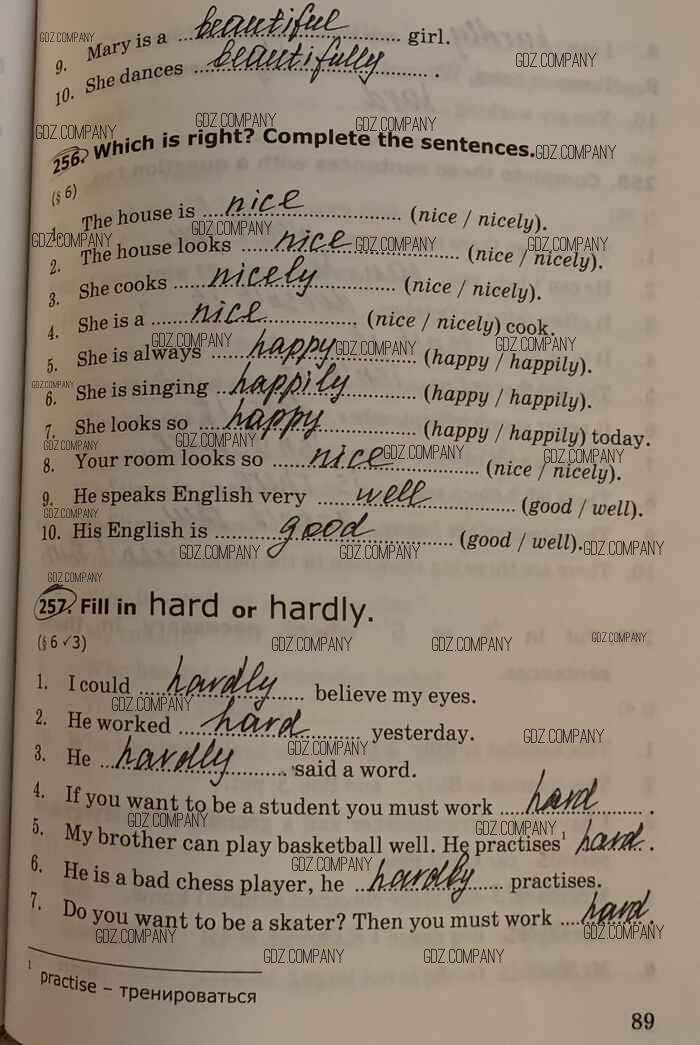 9. Mary is a beautiful girl.
10. She dances beautifully.
256. Which is right? Complete the sentences.
(§ 6)
1. The house is nice (nice / nicely).
2. The house looks nice (nice / nicely).
3. She cooks nicely (nice / nicely).
4. She is a nice (nice / nicely) cook.
5. She is always happy (happy / happily).
6. She is singing happily (happy / happily).
7. She looks so happy (happy / happily) today.
8. Your room looks so nice (nice / nicely).
9. He speaks English very well (good / well).
10. His English is good (good / well).
257. Fill in hard or hardly.
(§ 6 ✓3)
1. I could hardly believe my eyes.
2. He worked hard yesterday.
3. He hardly said a word.
4. If you want to be a student you must work hard.
5. My brother can play basketball well. He practises¹ hard.
6. He is a bad chess player, he hardly practises.
7. Do you want to be a skater? Then you must work hard.
¹ practise – тренироваться
89
GDZ.COMPANY